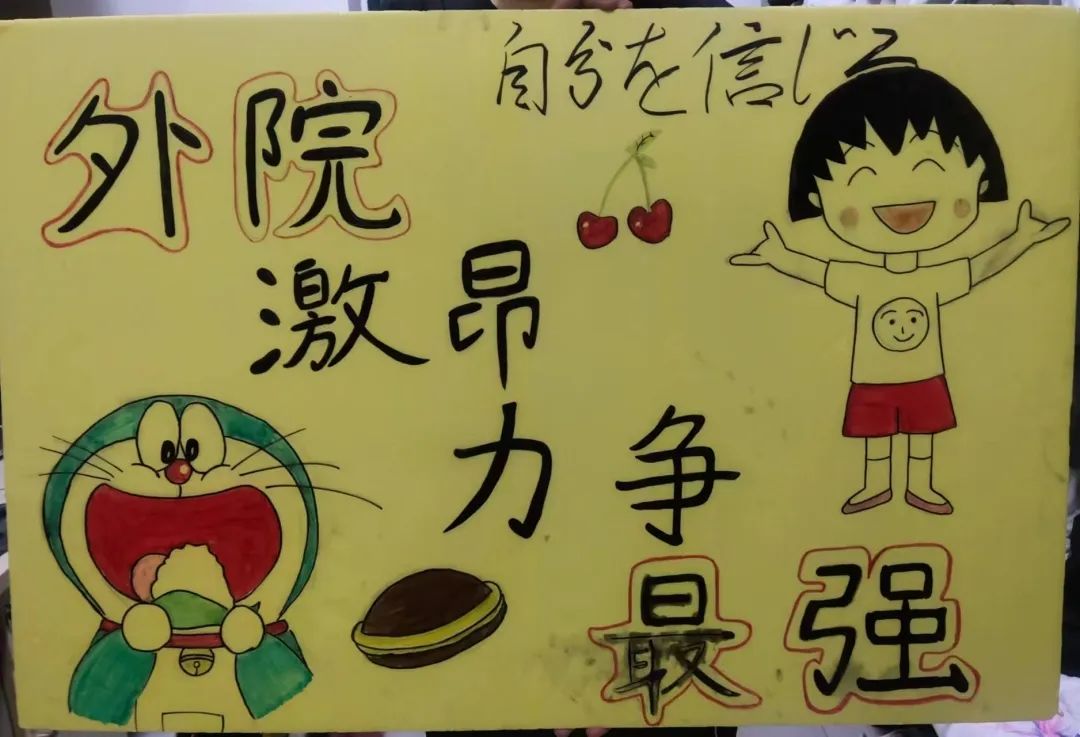 自分を信じる
外院
激昂
力争
最强